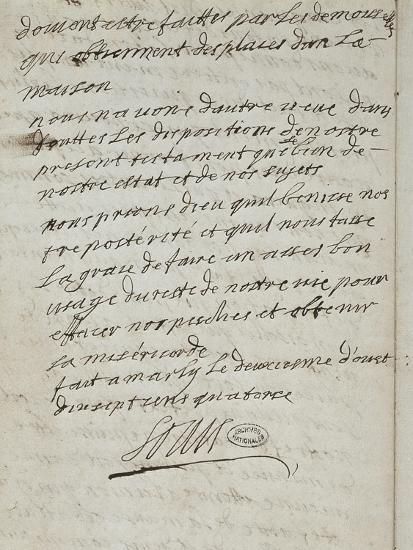 doivent estre faittes par les demoiselles
qui obtiennent des places dans la
maison
nous n avons d autre veue dans
touttes les dispositions de nostre
present testament que le bien de
nostre estat et de nos sujets
nous prions dieu quil benisse nos
tre postérité et quil nous fasse
la grace de faire un asses bon
usage du reste de nostre vie pour
effacer nos peches et obtenir
sa miséricorde
fait a marly le deuxiesme d aust
dix sept cens quatorze
Louis
ARCHIVES
NATIONALES